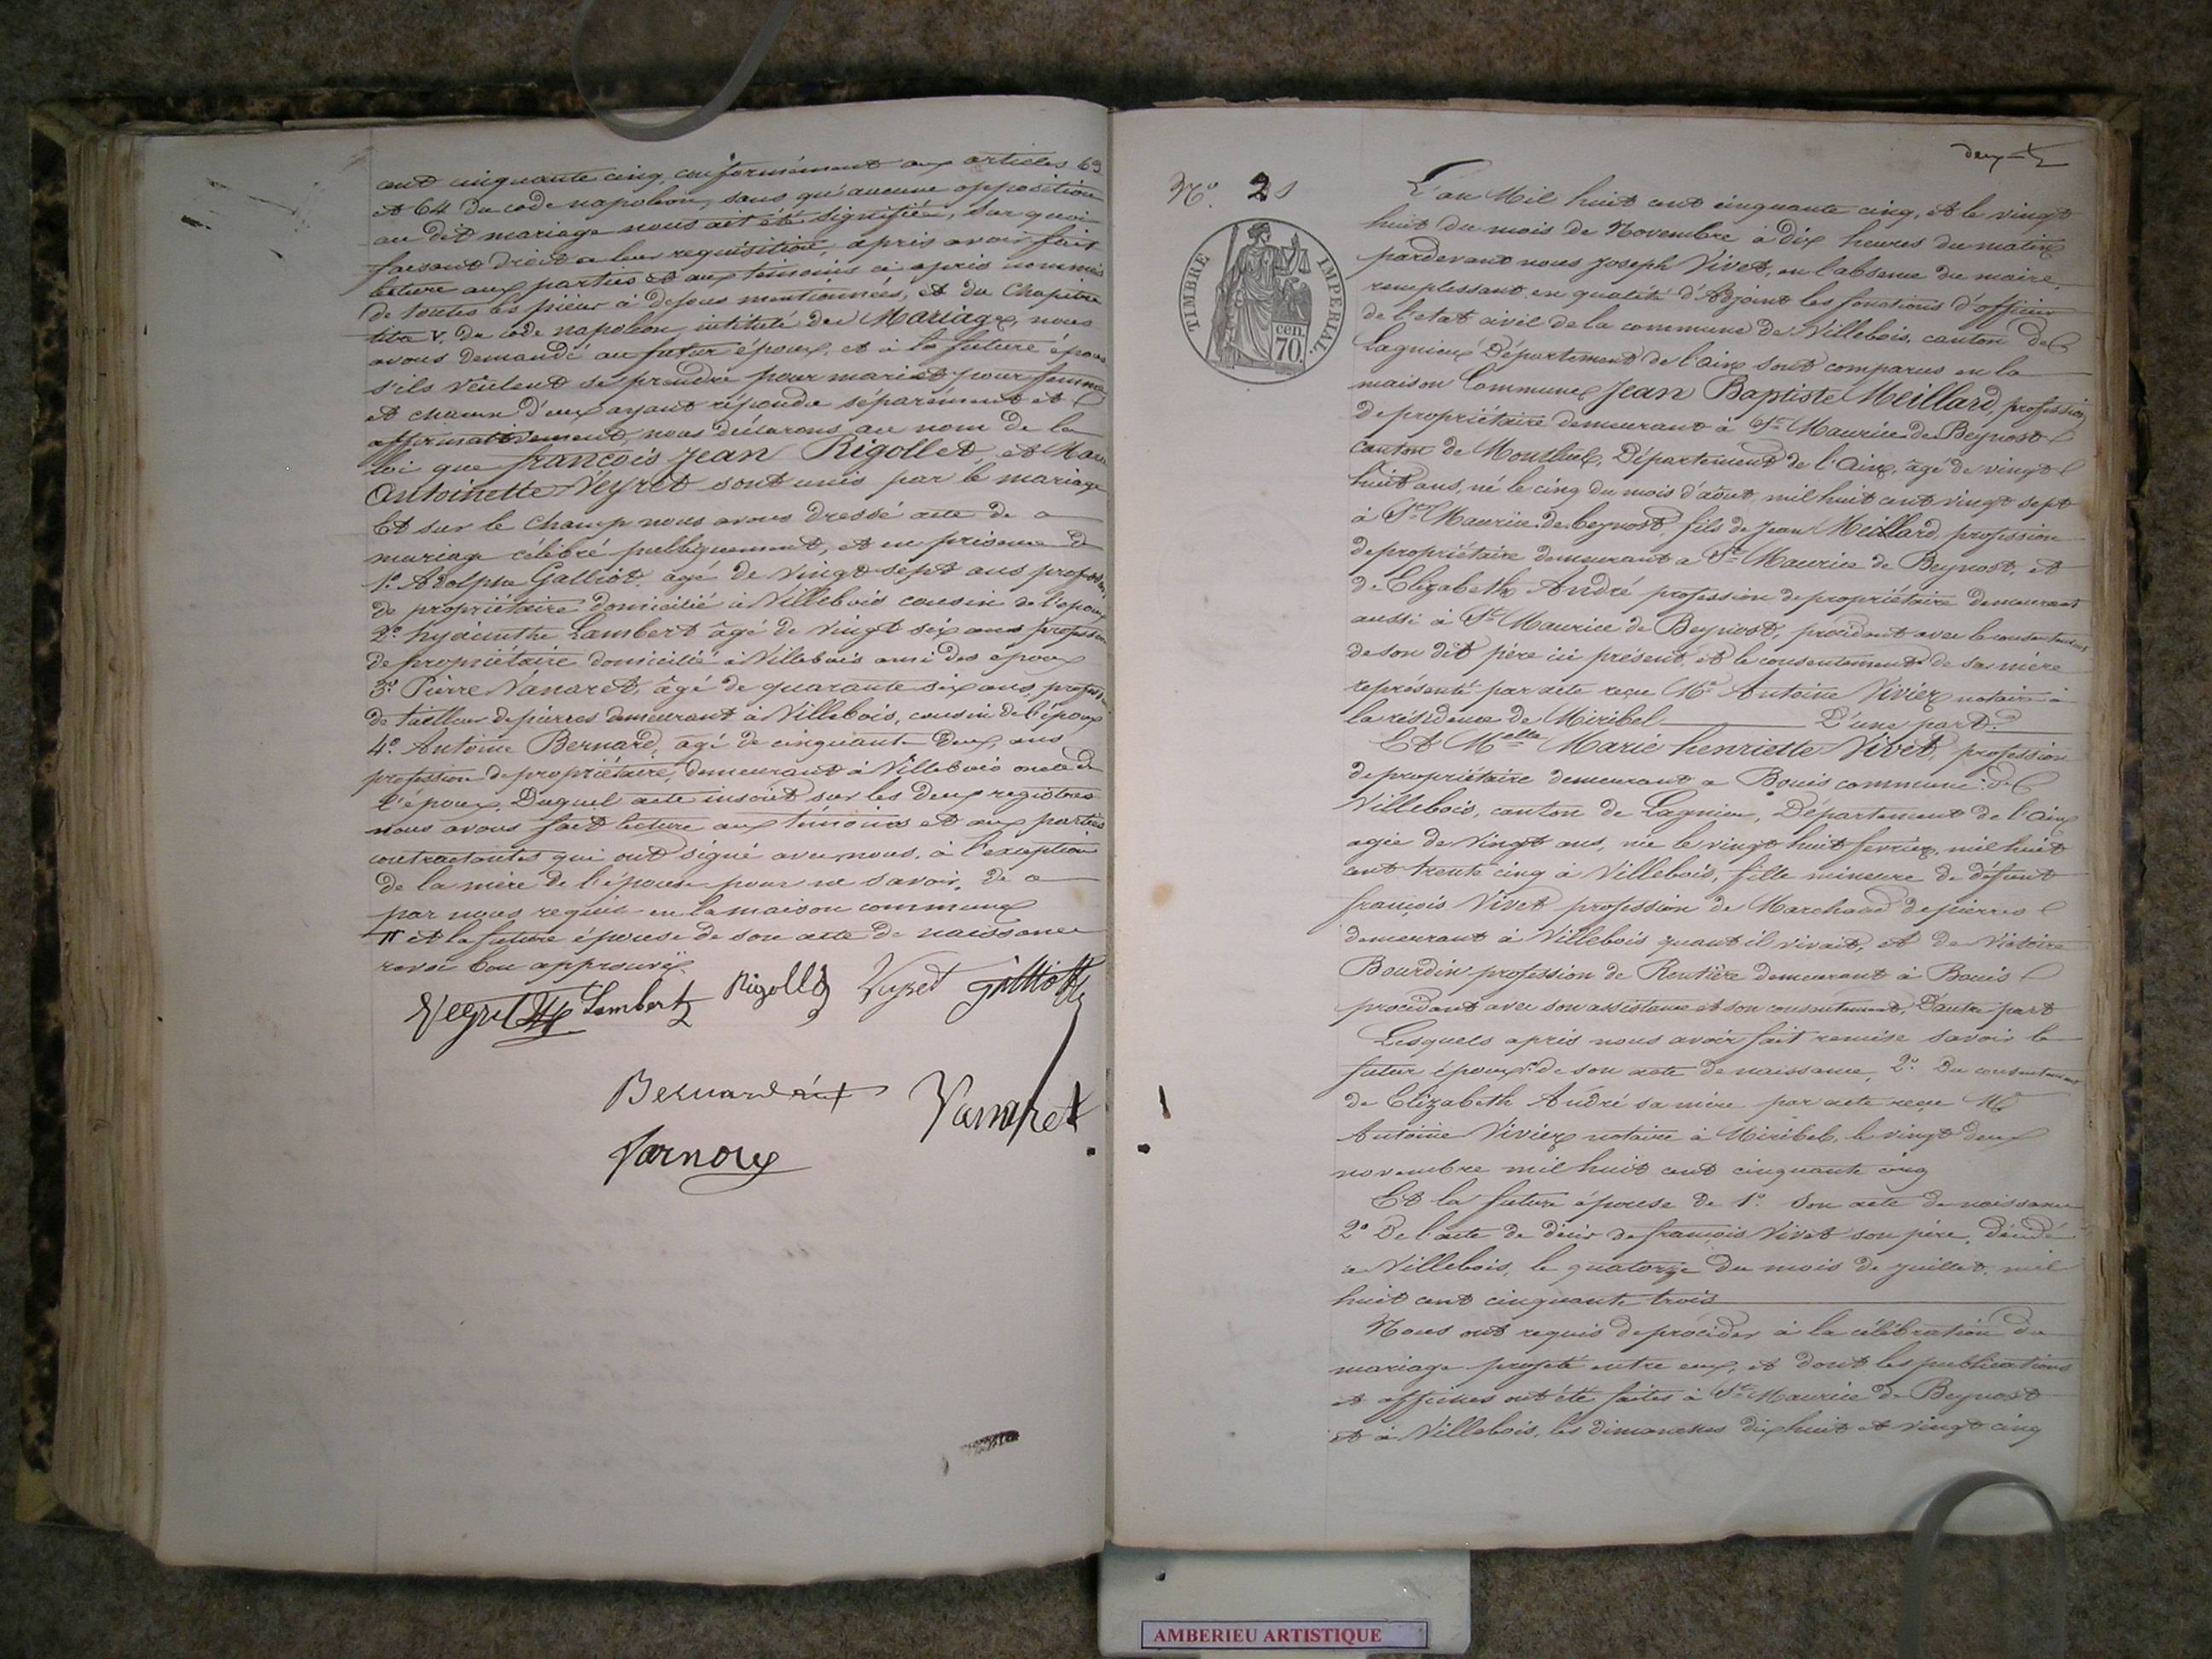 cent cinquante cinq, conformément aux articles 63
et 64 du code napoléon, sans qu'aucune opposition
au dit mariage nous ait été signifiée, sur quoi
faisant droit a leur requisition, après avoir fait
lecture aux parties et aux temoins ci après nommés
de toutes les pièces ci dessus mentionnées, et du Chapitre
titre V. du code napoléon, intitulé du Mariage, nous
avons demandé au futur époux, et à la future épouse
s'ils veulent se prendre pour mari et pour femme
et chacun d'eux ayant répondu séparément et
affirmativement, nous déclarons au nom de la
loi que françois Jean Rigollet, et
Antoinette Veyret sont unis par le mariage
Et sur le champ nous avons dressé acte de ce
mariage célébré publiquement, et en présence de
1.º Adolphe Galliot. agé de vingt sept ans profession
de propriétaire domicilié à Villebois cousin de l'époux
2.º hyacinthe Lambert âgé de vingt six ans profession
de propriétaire domicilié à Villebois ami des époux
3.º Pierre Vanaret, âgé de quarante six ans, profession
de tailleur de pierres demeurant à Villebois, cousin de l'époux
4.º Antoine Bernard, âgé de cinquante deux, ans
profession de propriétaire, demeurant à Villebois oncle de
l'époux. Duquel acte inscrit sur les deux registres
nous avons fait lecture aux témoins et aux parties
contractantes qui ont signé avec nous, à l'exception
de la mère de l'épouse pour ne savoir, de ce
par nous requise en la maison commune
et la future épouse de son acte de naissance
renvoi bon approuvé.
Veyret Lambert Rigollet Veyret galliot
Bernard Vanaret
Varnoux
deux
N.º 21
TIMBRE IMPERIAL.
cen.
70.
L'an Mil huit cent cinquante cinq, et le vingt
huit du mois de Novembre à dix heures du matin
pardevant nous Joseph Vivet, en l'absence du maire,
remplissant en qualité d'Adjoint les fonctions d'officier
de l'état civil de la commune de Villebois, canton de
Lagnieu Département de l'ain sont comparus en la
maison Commune Jean Baptiste Meillard, profession
de propriétaire demeurant à St Maurice de Beynost
canton de Montluel, Département de l'Ain, âgé de vingt
huit ans, né le cinq du mois d'août mil huit cent vingt sept
à St Maurice de beynost, fils de Jean Meillard, profession
de propriétaire demeurant a St Maurice de Beynost, et
de Elizabeth André profession de propriétaire demeurant
aussi à St Maurice de Beynost, procédant avec le consentement
de son dit père ici présent, et le consentement de sa mère
représenté par acte reçu Me Antoine Vivier notaire à
la résidence de Miribel D'une part.
Et Melle Marie henriette Vivet, profession
de propriétaire demeurant a Bouis commune de
Villebois, canton de Lagnieu, Département de l'Ain
agée de vingt ans, née le vingt huit fevrier, mil huit
cent trente cinq à Villebois, fille mineure de défunt
françois Vivet profession de Marchand de pierres
demeurant à Villebois quant il vivait, et de Victoire
Bourdin profession de Rentière demeurant à Bouis
procédant avec son assistance et son consentement, D'autre part
Lesquels après nous avoir fait remise savoir le
futur époux 1.º de son acte de naissance, 2.º Du consentement
de Elizabeth André sa mère par acte reçu Me
Antoine Vivier notaire à Miribel, le vingt deux
novembre mil huit cent cinquante cinq
Et la future épouse de 1.º Son acte de naissance
2º De l'acte de décès de françois Vivet son père, décédé
a Villebois, le quatorze du mois de juillet, mil
huit cent cinquante trois
Nous ont requis de procéder à la célébration du
mariage projeté entre eux, et dont les publications
et affiches ont été faites à St Maurice de Beynost
et à Villebois, les dimanches dix huit et vingt cinq
AMBERIEU ARTISTIQUE